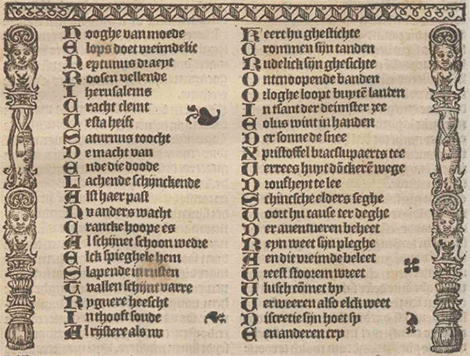 Hooghe van moede
Elops doet vreimdelic
Neptunus draept
Roosen vellende
Iherusalems
Cracht clemt
Vesta heift
Saturnus toocht
De macht van
Ende die doode
Lachende schijnckende
Alst haer past
Nv anders wacht
Crancke hoope es
Al schijnet schoon wedre
Elck spieghels hem
Slapende in rusten
Tvallen schijnt varre
Ryguere heescht
In thooft soude
Al rijstere als nv
Keert hu ghestichte
Crommen sijn tanden
Rudelick sijn ghesichte
Ontcnoopende banden
Orloghe loopt buyten landen
In tsant der deimster zee
Eolus wint in handen
Der sonne de snee
Xpristoffel bracht upaerts tee
Verrees huyt donckeren wege
Droufheyt te lee
Schincsche elders seghe
Voort hu causе ter deghe
Der auentueren beheet
Reyn weet sijn pleghe
Aen die vreimde beleet
Vreest stoorem weet
Vlusch comet by
Verweeren also elck weet
Discretie sijn hoet sy
Een anderen cry